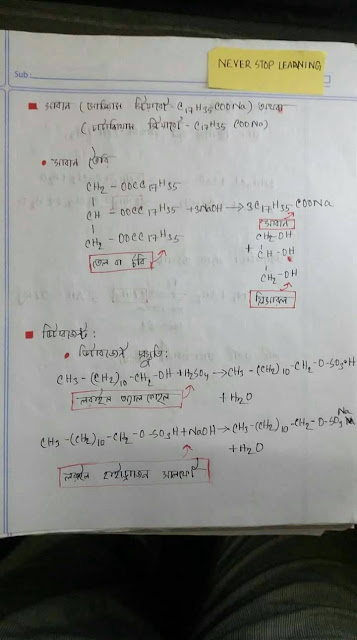 NEVER STOP LEARNING
Sub:
সাবান (সোডিয়াম স্টিয়ারেট - C17H35COONa) অথবা
(পটাসিয়াম স্টিয়ারেট - C17H35 COONa)
সাবান তৈরি
CH2 - OOCC17H35
CH - OOCC17H35 + 3NaOH → 3C17H35COONa
CH2 - OOCC17H35
তেল বা চর্বি
সাবান
CH2-OH
+ CH-OH
CH2-OH
গ্লিসারল
ডিটারজেন্ট:
ডিটারজেন্ট প্রস্তুতি:
CH3 - (CH2)10 - CH2-OH + H2SO4 → CH3 - (CH2)10 - CH2-O-SO3H
লরাইল অ্যালকোহল
+ H2O
CH3 - (CH2)10 - CH2 - O-SO3H + NaOH → CH3 - (CH2)10 - CH2-O-SO3Na
+ H2O
লরাইল হাইড্রোজেন সালফেট